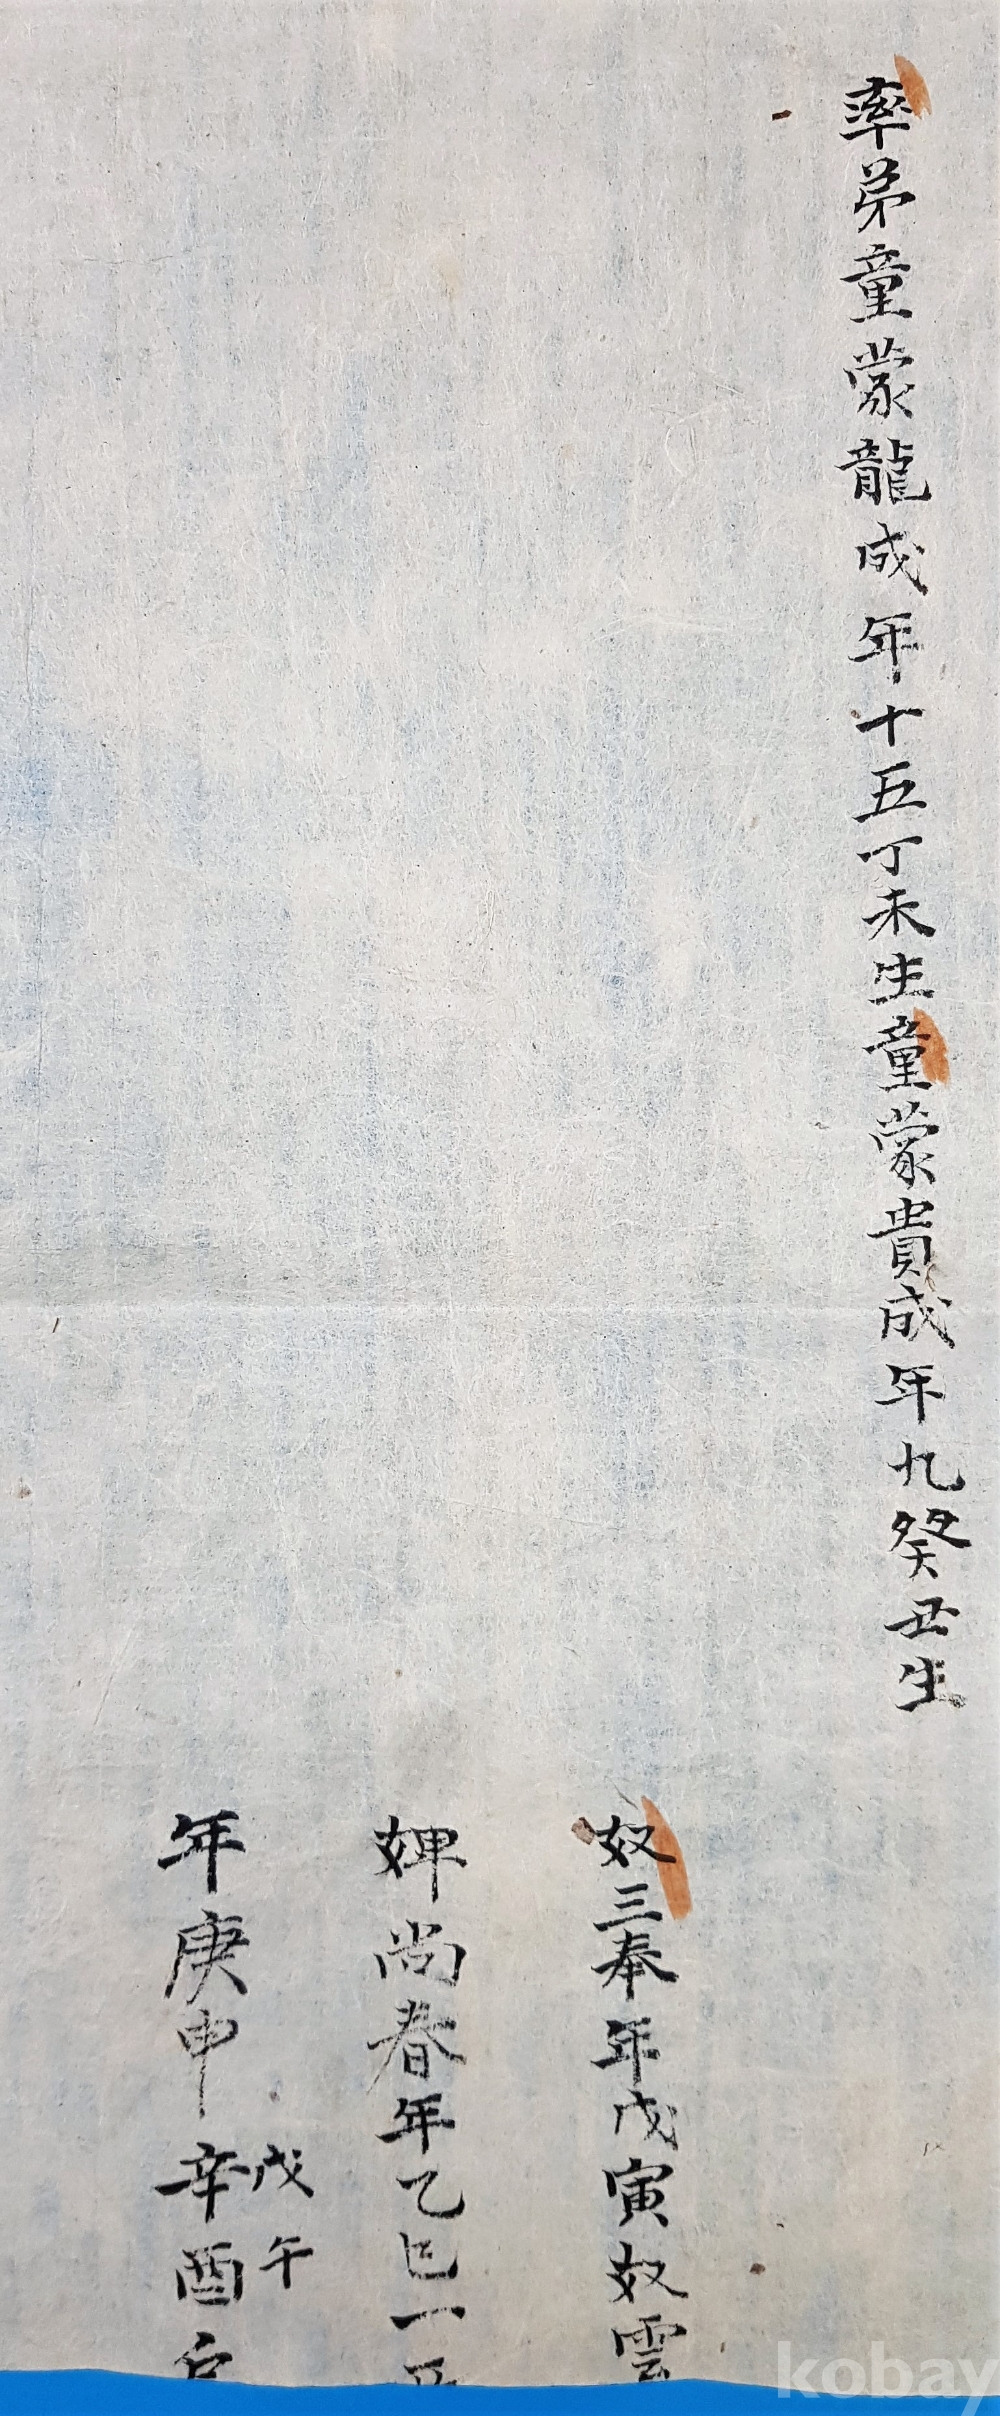 率弟童蒙龍成年十五丁未生童蒙貴成年九癸丑生
奴三奉年戊寅奴雲
婢尚春年乙巳一
戊午
年庚申辛酉
kobay